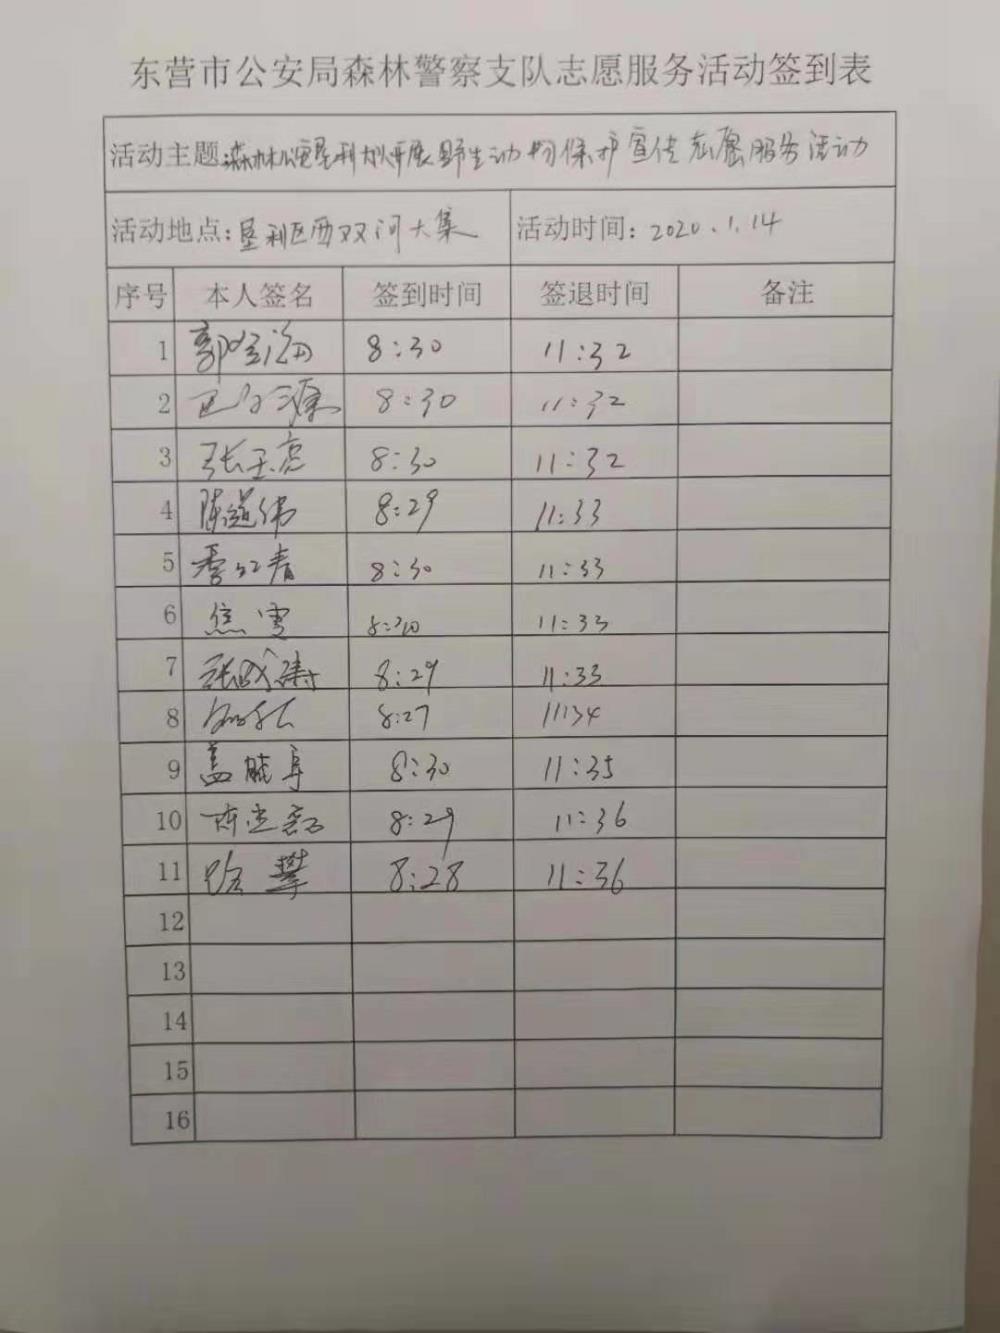 东营市公安局森林警察支队志愿服务活动签到表
活动主题:森林公安垦利 开展野生动物保护宣传志愿服务活动
活动地点:垦利区西双河大集 活动时间:2020.1.14
序号 本人签名 签到时间 签退时间 备注
1 郭 海 8:30 11:32
2 源 8:30 11:32
3 张玉亮 8:30 11:32
4 陈 伟 8:29 11:33
5 季红青 8:30 11:33
6 焦雪 8:30 11:33
7 张成涛 8:29 11:33
8 8:27 11:34
9 盖晓 8:30 11:35
10 8:29 11:36
11 徐攀 8:28 11:36
12
13
14
15
16